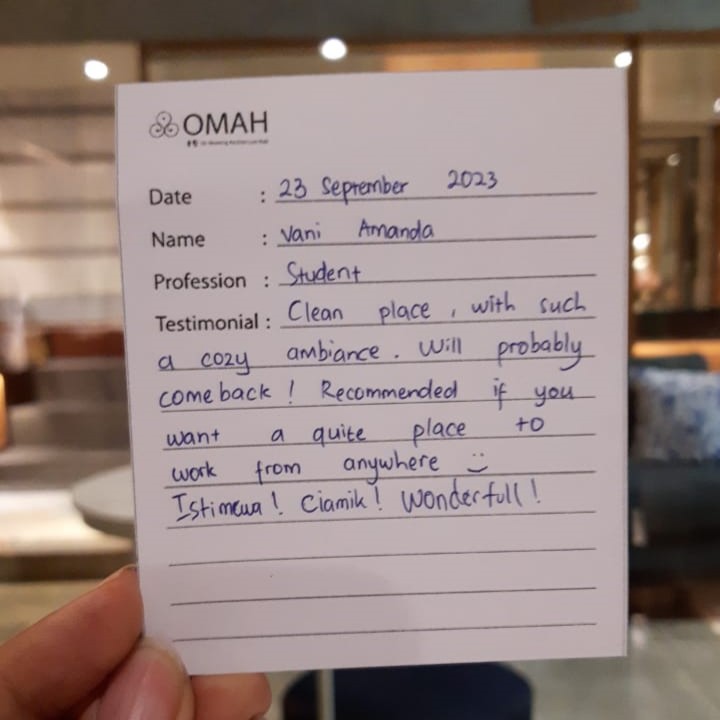 OMAH
Date : 23 September 2023
Name : Vani Amanda
Profession : Student
Testimonial : Clean place, with such
a cozy ambiance. Will probably
come back! Recommended if you
want a quite place to
work from anywhere :)
Istimewa! Ciamik! Wonderfull!